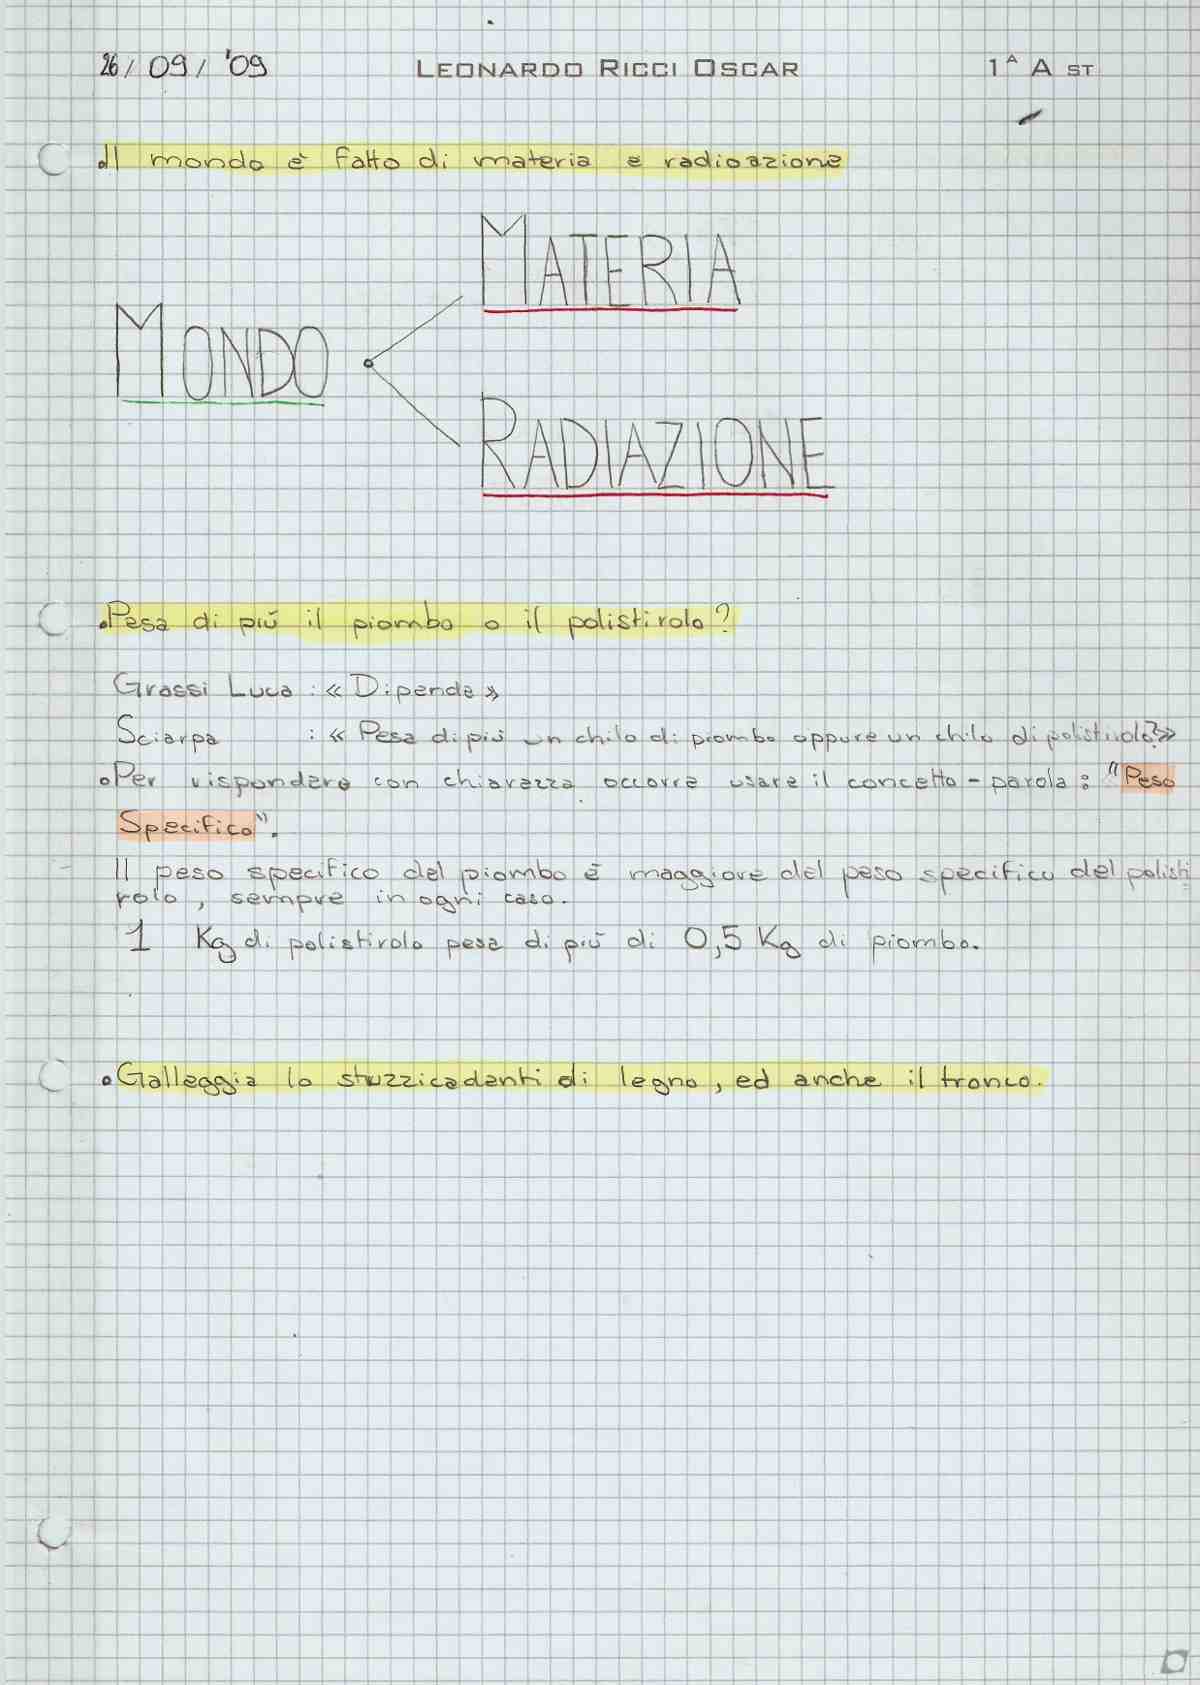 26/ 09/ '09 LEONARDO RICCI OSCAR 1^A A ST
•Il mondo è fatto di materia e radioazione
MATERIA
MONDO
RADIAZIONE
•Pesa di più il piombo o il polistirolo?
Grassi Luca : « Dipende »
Sciarpa : « Pesa di più un chilo di piombo oppure un chilo di polistirolo?»
•Per rispondere con chiarezza occorre usare il concetto - parola : "Peso
Specifico".
Il peso specifico del piombo è maggiore del peso specifico del polisti
rolo, sempre in ogni caso.
1 Kg di polistirolo pesa di più di 0,5 Kg di piombo.
•Galleggia lo stuzzicadenti di legno, ed anche il tronco.